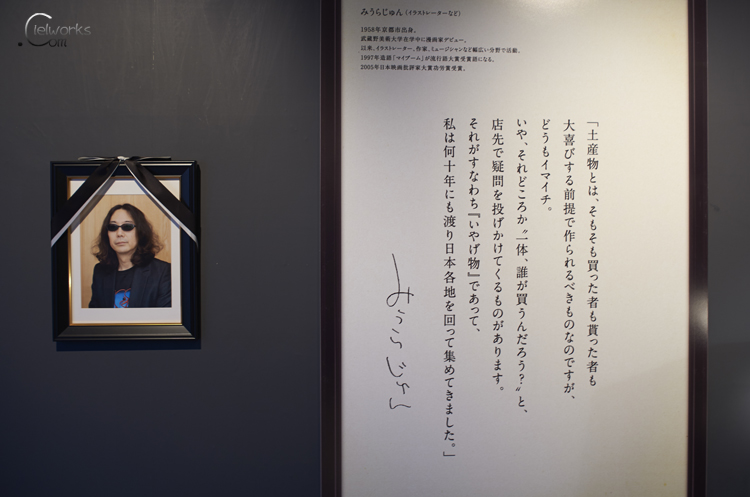 Cielworks
.Com
みうらじゅん（イラストレーターなど）
1958年京都市出身。
武蔵野美術大学在学中に漫画家デビュー。
以来、イラストレーター、作家、ミュージシャンなど幅広い分野で活躍。
1997年造語「マイブーム」が流行語大賞受賞語になる。
2005年日本映画批評家大賞功労賞受賞。
「土産物とは、そもそも買った者も貰った者も
大喜びする前提で作られるべきものなのですが、
どうもイマイチ。
いや、それどころか〝一体、誰が買うんだろう？〟と、
店先で疑問を投げかけてくるものがあります。
それがすなわち『いやげ物』であって、
私は何十年にも渡り日本各地を回って集めてきました。」
みうらじゅん